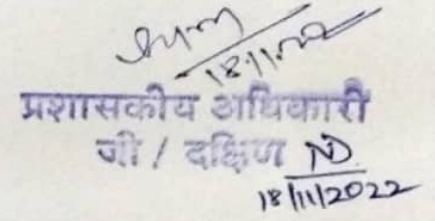 18/11/22
प्रशासकीय अधिकारी
जी / दक्षिण ND
18/11/2022